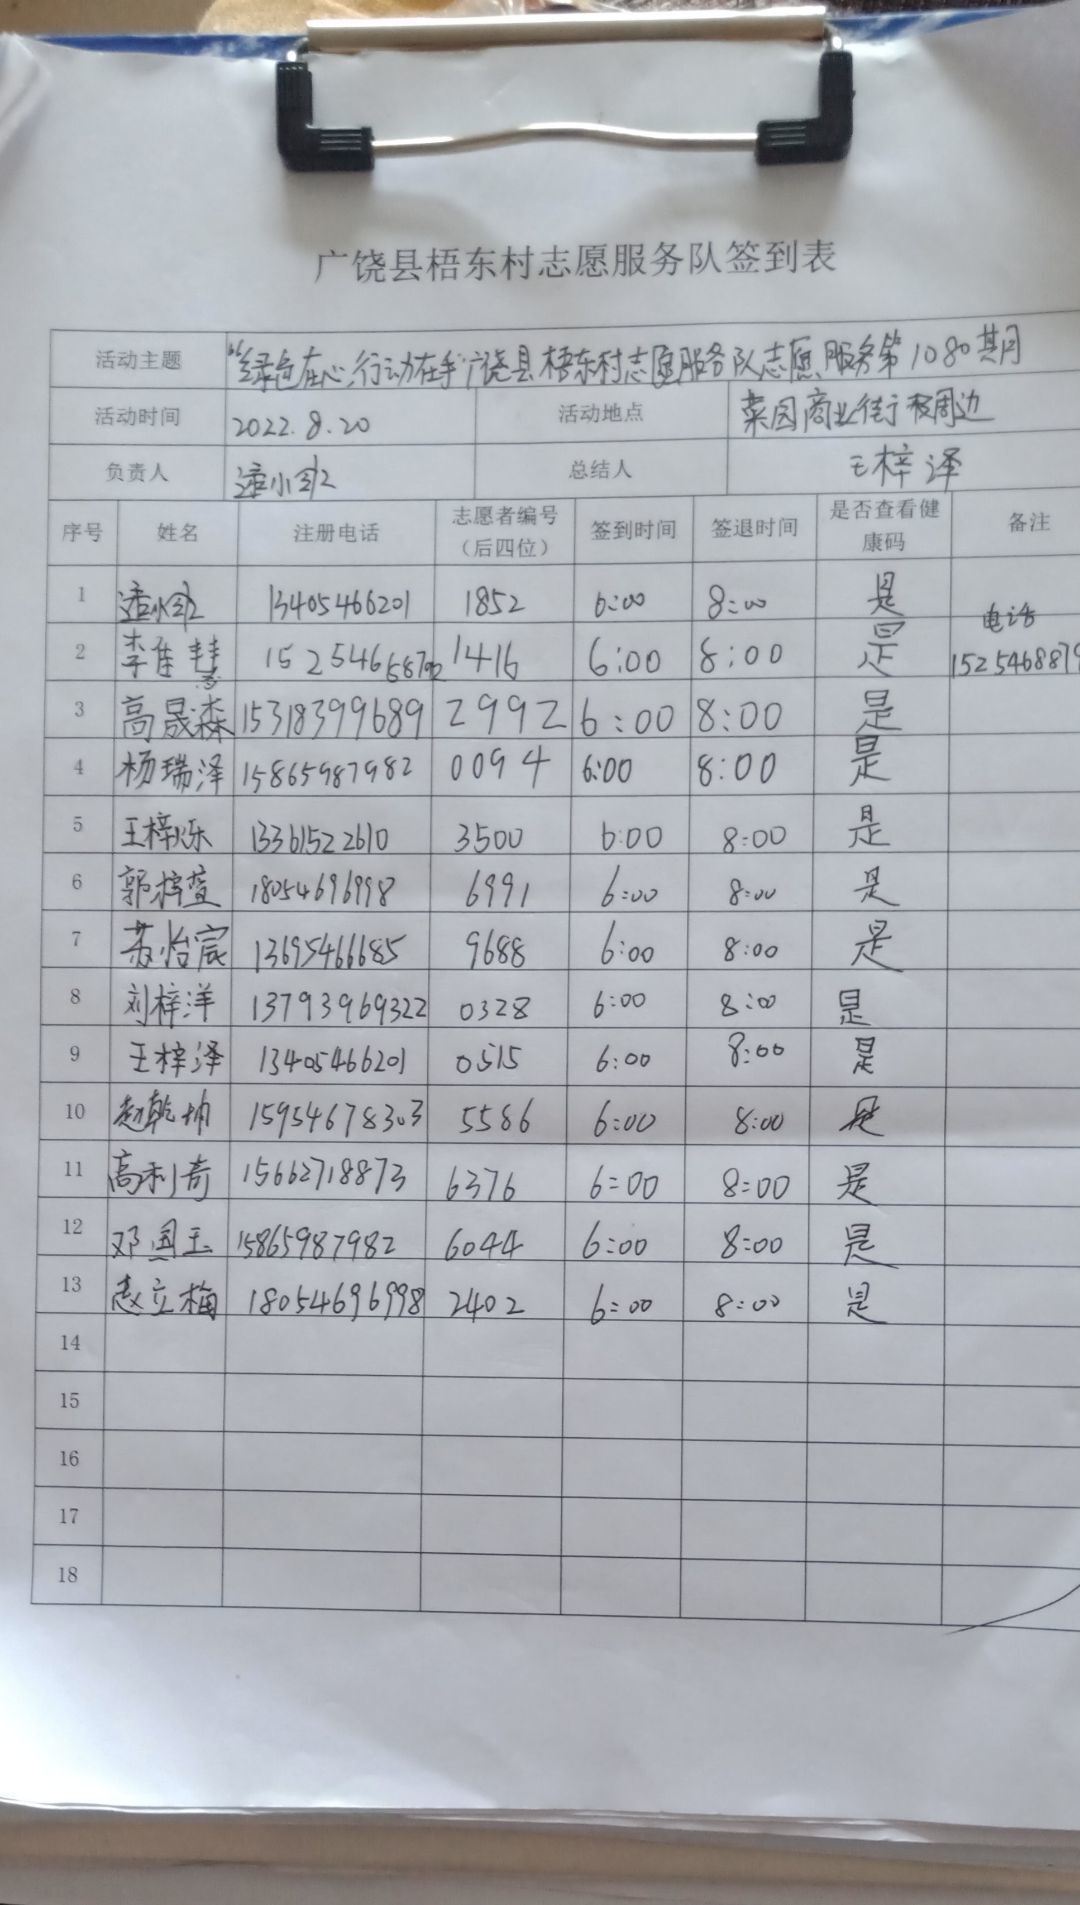 广饶县梧东村志愿服务队签到表
活动主题 “绿色在心,行动在手”广饶县梧东村志愿服务队志愿服务第1080期
活动时间 2022.8.20 活动地点 菜园商业街及周边
负责人 总结人 王梓泽
序号 姓名 注册电话 志愿者编号（后四位） 签到时间 签退时间 是否查看健康码 备注
1 13405466201 1852 6:00 8:00 是
2 1416 6:00 8:00 是 电话 1525468879
3 高晟森 15318399689 2992 6:00 8:00 是
4 杨瑞泽 15865987982 0094 6:00 8:00 是
5 王梓烁 13361522610 3500 6:00 8:00 是
6 郭梓萱 18054696998 6991 6:00 8:00 是
7 苏怡宸 13695466685 9688 6:00 8:00 是
8 刘梓洋 13793969322 0328 6:00 8:00 是
9 王梓泽 13405466201 0515 6:00 8:00 是
10 赵乾坤 15954678303 5586 6:00 8:00 是
11 高利奇 15662718873 6376 6:00 8:00 是
12 邓国玉 15865987982 6044 6:00 8:00 是
13 赵立梅 18054696998 2402 6:00 8:00 是
14
15
16
17
18